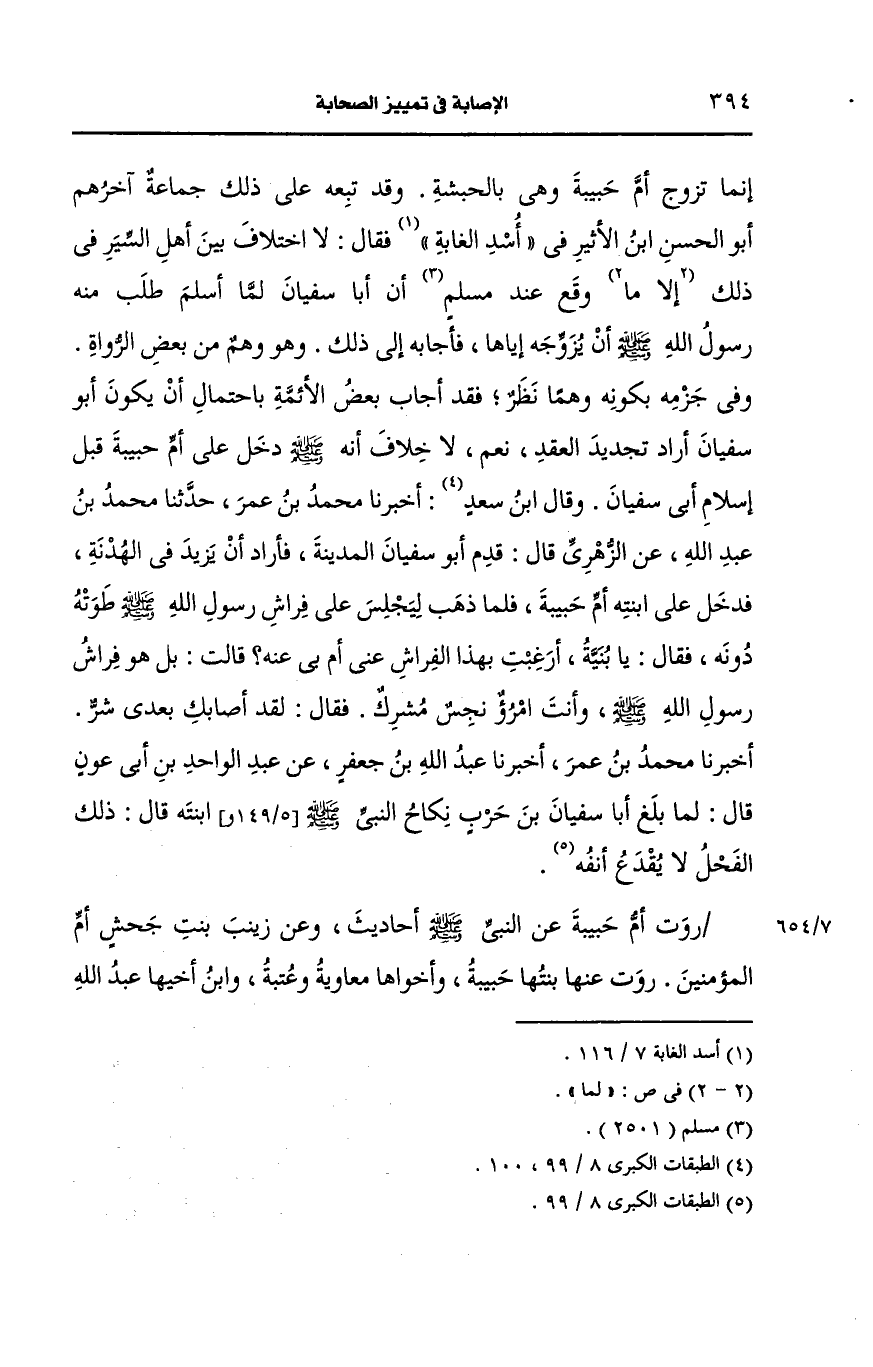 ٣٩٤ الإصابة فى تمييز الصحابة
إنما تزوج أمَّ حَبيبةَ وهى بالحبشةِ . وقد تبِعه على ذلك جماعةٌ آخرُهم
أبو الحسنِ ابنُ الأثيرِ فى « أُسْدِ الغابةِ »(١) فقال : لا اختلافَ بينَ أهلِ السِّيَرِ فى
ذلك (٢إلا ما٢) وقَع عند مسلمٍ(٣) أن أبا سفيانَ لمَّا أسلمَ طلَب منه
رسولُ اللهِ ﷺ أنْ يُزَوِّجَه إياها ، فأجابه إلى ذلك . وهو وهمٌ من بعضِ الرُّواةِ .
وفى جَزْمِه بكونِه وهمًا نَظَرٌ ؛ فقد أجاب بعضُ الأئمَّةِ باحتمالِ أنْ يكونَ أبو
سفيانَ أراد تجديدَ العقدِ ، نعم ، لا خِلافَ أنه ﷺ دخَل على أمِّ حبيبةَ قبل
إسلامِ أبى سفيانَ . وقال ابنُ سعدٍ(٤) : أخبرنا محمدُ بنُ عمرَ ، حدَّثنا محمدُ بنُ
عبدِ اللهِ ، عن الزُّهْرِىِّ قال : قدِم أبو سفيانَ المدينةَ ، فأراد أنْ يَزيدَ فى الهُدْنَةِ ،
فدخَل على ابنتِه أمِّ حَبيبةَ ، فلما ذهَب لِيَجْلِسَ على فِراشِ رسولِ اللهِ ﷺ طَوَتْهُ
دُونَه ، فقال : يا بُنَيَّةُ ، أرَغِبْتِ بهذا الفِراشِ عنى أم بى عنه؟ قالت : بل هو فِراشُ
رسولِ اللهِ ﷺ ، وأنتَ امْرُؤٌ نجِسٌ مُشرِكٌ . فقال : لقد أصابكِ بعدى شرٌّ .
أخبرنا محمدُ بنُ عمرَ ، أخبرنا عبدُ اللهِ بنُ جعفرٍ ، عن عبدِ الواحدِ بنِ أبى عونٍ
قال : لما بلَغ أبا سفيانَ بنَ حَرْبٍ نِكاحُ النبىِّ ﷺ [١٤٩/٥و] ابنتَه قال : ذلك
الفَحْلُ لا يُقْدَعُ أنفُه(٥) .
٦٥٤/٧ /روَت أمُّ حَبيبةَ عن النبىِّ ﷺ أحاديثَ ، وعن زينبَ بنتِ جَحشٍ أمِّ
المؤمنينَ . روَت عنها بنتُها حَبيبةُ ، وأخواها معاويةُ وعُتبةُ ، وابنُ أخيها عبدُ اللهِ
(١) أسد الغابة ٧ / ١١٦ .
(٢ - ٢) فى ص : « لما » .
(٣) مسلم ( ٢٥٠١ ) .
(٤) الطبقات الكبرى ٨ / ٩٩ ، ١٠٠ .
(٥) الطبقات الكبرى ٨ / ٩٩ .